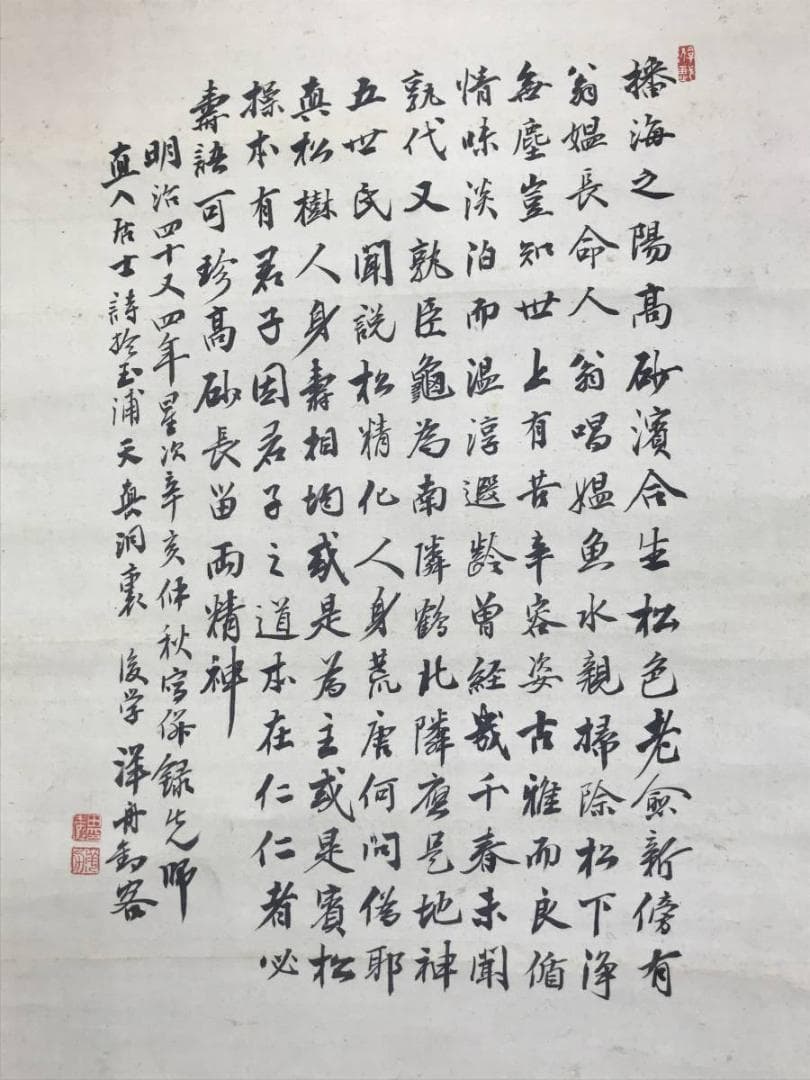 播海之陽高砂濱合生松色老愈新傍有
翁媼長命人翁唱媼魚水親掃除松下淨
無塵豈知世上有苦辛容姿古雅而良循
情味淡泊而温淳遐齡曾経幾千春未聞
孰代又孰臣龜為南隣鶴北隣應是地神
五世民聞説松精化人身荒唐何問偽耶
真松樹人身壽相均或是為主或是賓松
操本有君子因君子之道本在仁仁者必
壽語可珍高砂長留両精神
明治四十又四年星次辛亥仲秋寫併錄先師
直入居士詩於玉浦天真洞裏 後学